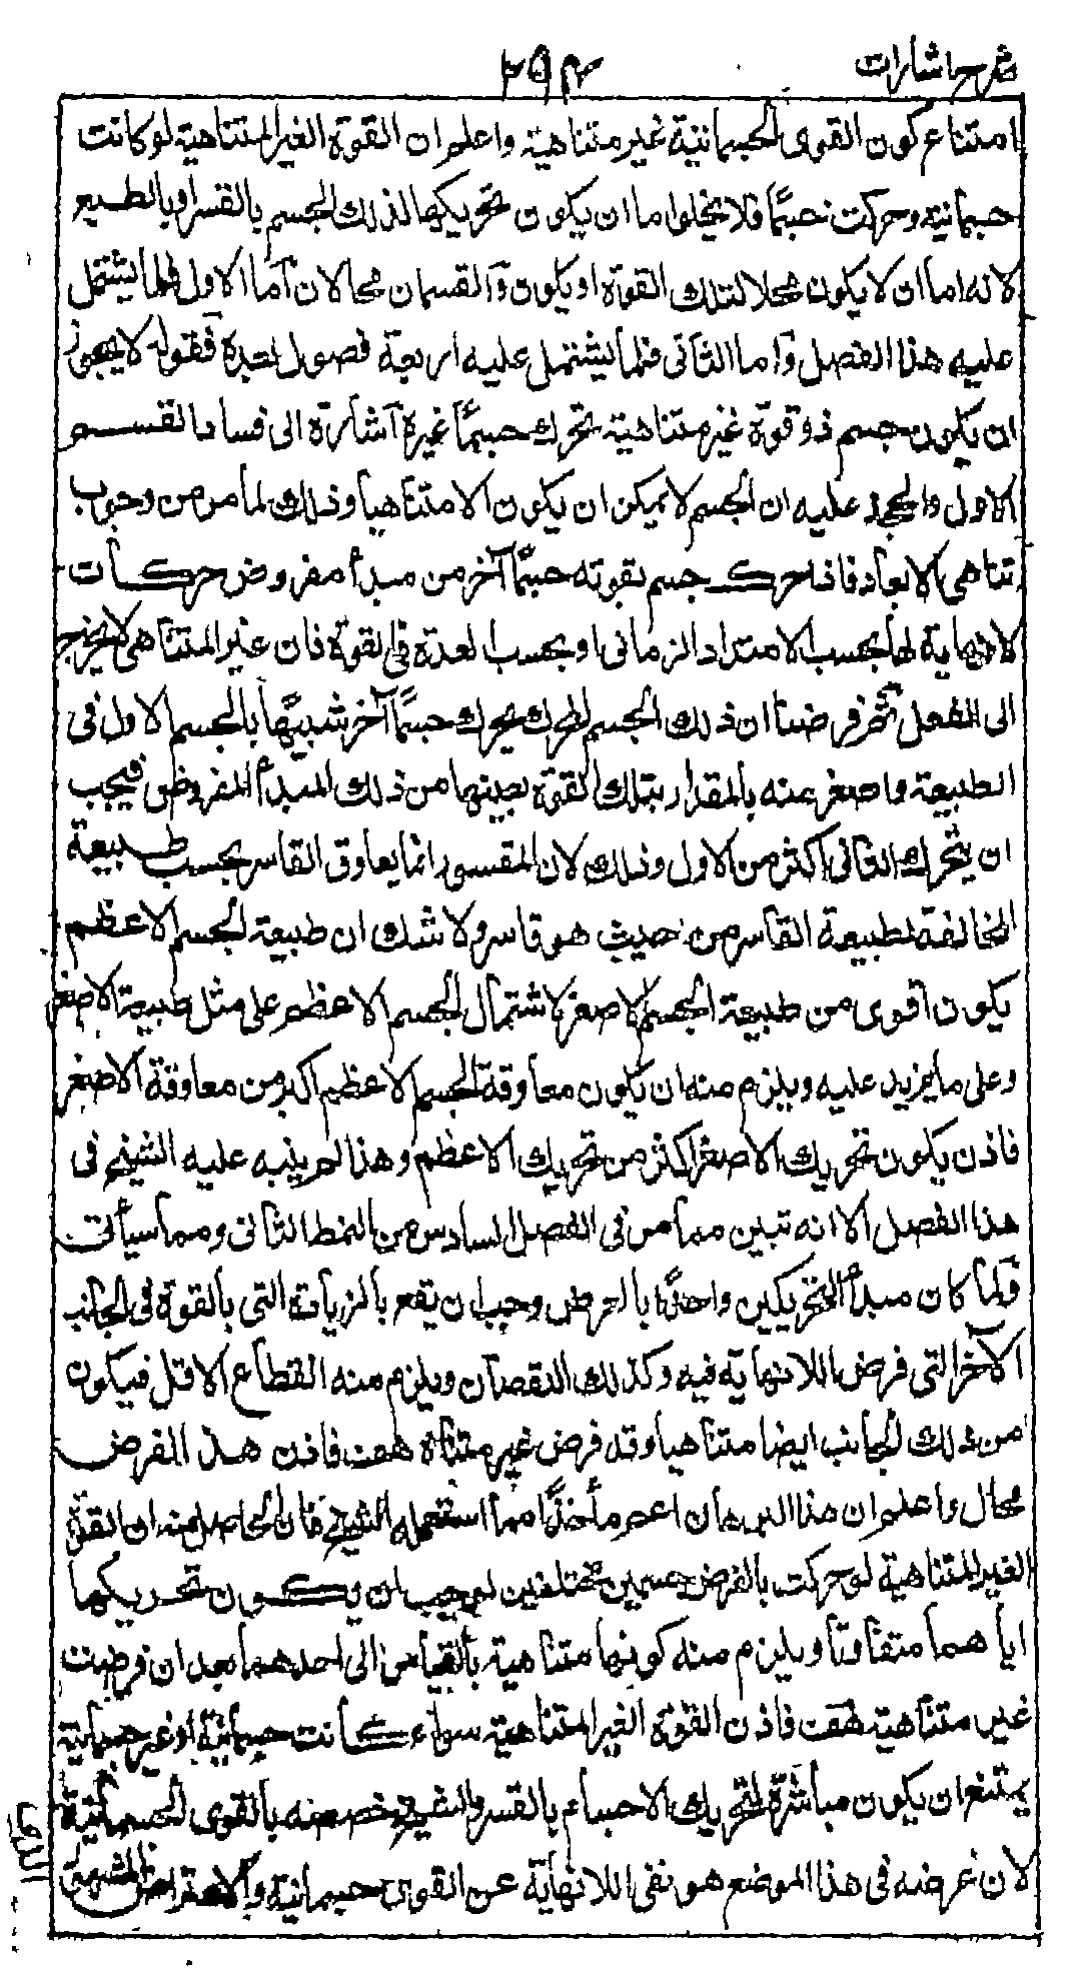 شرح اشارات
٢٥٣
امتناع كون القوى الجسمانية غير متناهية واعلم ان القوة الغير المتناهية لو كانت
جسمانية وحركت جسمًا فلا يخلوا ما ان يكون تحريكها لذلك الجسم بالقسر او بالطبع
لانه اما ان لا يكون محلا لتلك القوة او يكون وآلقسمان محالان آما الاول فلما يشتمل
عليه هذا الفصل وآما الثانى فلما يشتمل عليه اربعة فصول بعده فقوله لا يجوز
ان يكون جسم ذو قوة غير متناهية يحرك جسمًا غيره آشارة الى فساد القسم
الاول والحجة عليه ان الجسم لا يمكن ان يكون الا متناهيا وذلك لما مر من وجوب
تناهى الابعاد فاذا حرك جسم بقوته جسمًا آخر من مبدأ مفروض حركات
لا نهاية لها بحسب الامتداد الزمانى او بحسب العدة فى القوة فان غير المتناهى لا يخرج
الى الفعل ثم فرضنا ان ذلك الجسم المحرك يحرك جسمًا آخر شبيهًا بالجسم الاول فى
الطبيعة واصغر منه بالمقدار بتلك القوة بعينها من ذلك المبدأ المفروض فيجب
ان يتحرك الثانى اكثر من الاول وذلك لان المقسور انما يعاوق القاسر بحسب طبيعة
المخالفة لطبيعة القاسر من حيث هو قاسر ولا شك ان طبيعة الجسم الاعظم
يكون اقوى من طبيعة الجسم الاصغر لاشتمال الجسم الاعظم على مثل طبيعة الاصغر
وعلى ما يزيد عليه ويلزم منه ان يكون معاوقة الجسم الاعظم اكبر من معاوقة الاصغر
فاذن يكون تحريك الاصغر اكثر من تحريك الاعظم وهذا لم ينبه عليه الشيخ فى
هذا الفصل الا انه تبين مما مر فى الفصل السادس من النمط الثانى ومما سيأتى
فلما كان مبدأ التحريكين واحدًا بالفرض وجب ان يقع بالزيادة التى بالقوة فى الجانب
الآخر التى فرض اللانهاية فيه وكذلك النقصان ويلزم منه انقطاع الاقل فيكون
من ذلك الجانب ايضا متناهيا وقد فرض غير متناه هف فاذن هذا الفرض
محال واعلم ان هذا البرهان اعم مأخذًا مما استعمله الشيخ فان الحاصل منه ان القوة
الغير المتناهية لو حركت بالفرض جسمين مختلفين لوجب ان يكون تحريكها
اياهما متفاوتا ويلزم منه كونها متناهية بالقياس الى احدهما بعد ان فرضت
غير متناهية هف فاذن القوة الغير المتناهية سواء كانت جسمانية او غير جسمانية
يمتنع ان يكون مباشرة لتحريك الاجسام بالقسر والشيخ خصصه بالقوى الجسمانية
لان غرضه فى هذا الموضع هو نفى اللانهاية عن القوى جسمانية والاعتراض المشهور